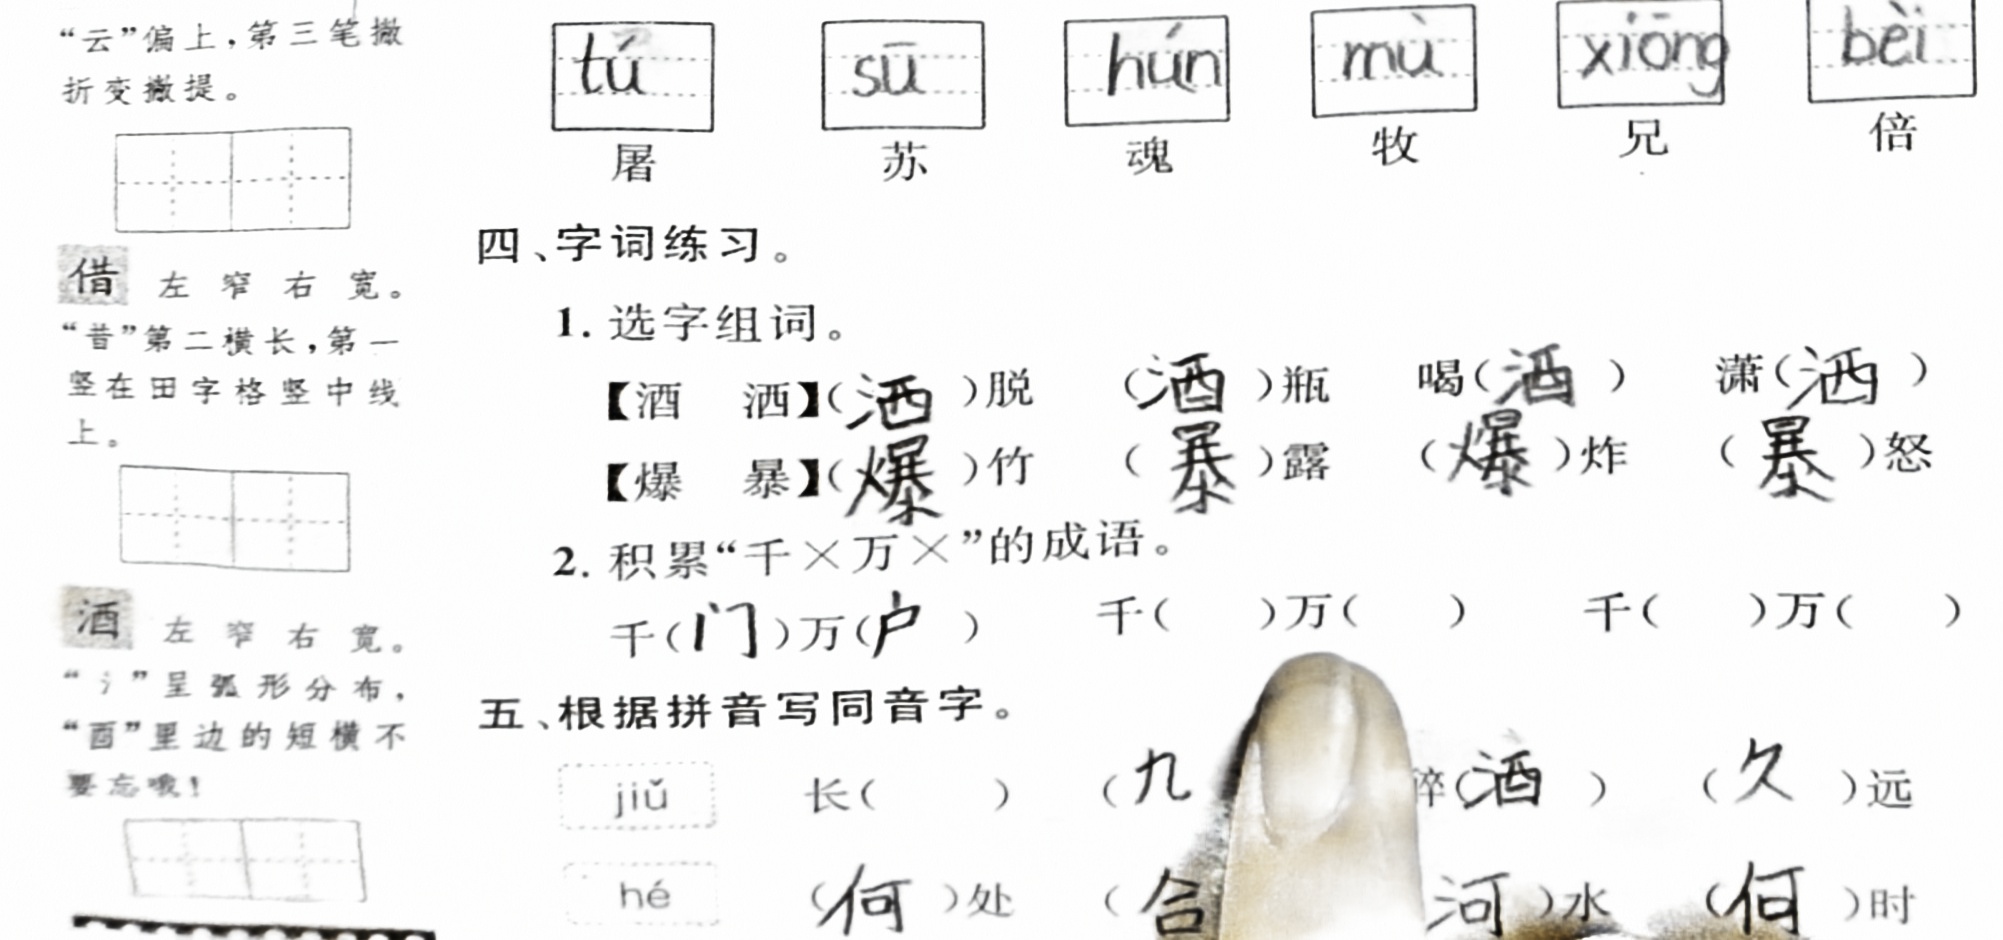 “云”偏上，第三笔撇
折变撇提。
借 左窄右宽。
“昔”第二横长，第一
竖在田字格竖中线
上。
酒 左窄右宽。
“氵”呈弧形分布，
“酉”里边的短横不
要忘哦！
tú sū hún mù xiōng bèi
屠 苏 魂 牧 兄 倍
四、字词练习。
1. 选字组词。
【酒 洒】（洒）脱 （酒）瓶 喝（酒） 潇（洒）
【爆 暴】（爆）竹 （暴）露 （爆）炸 （暴）怒
2. 积累“千×万×”的成语。
千（门）万（户） 千（ ）万（ ） 千（ ）万（ ）
五、根据拼音写同音字。
jiǔ 长（ ） （九 醉（酒） （久）远
hé （何）处 （合 河）水 （何）时